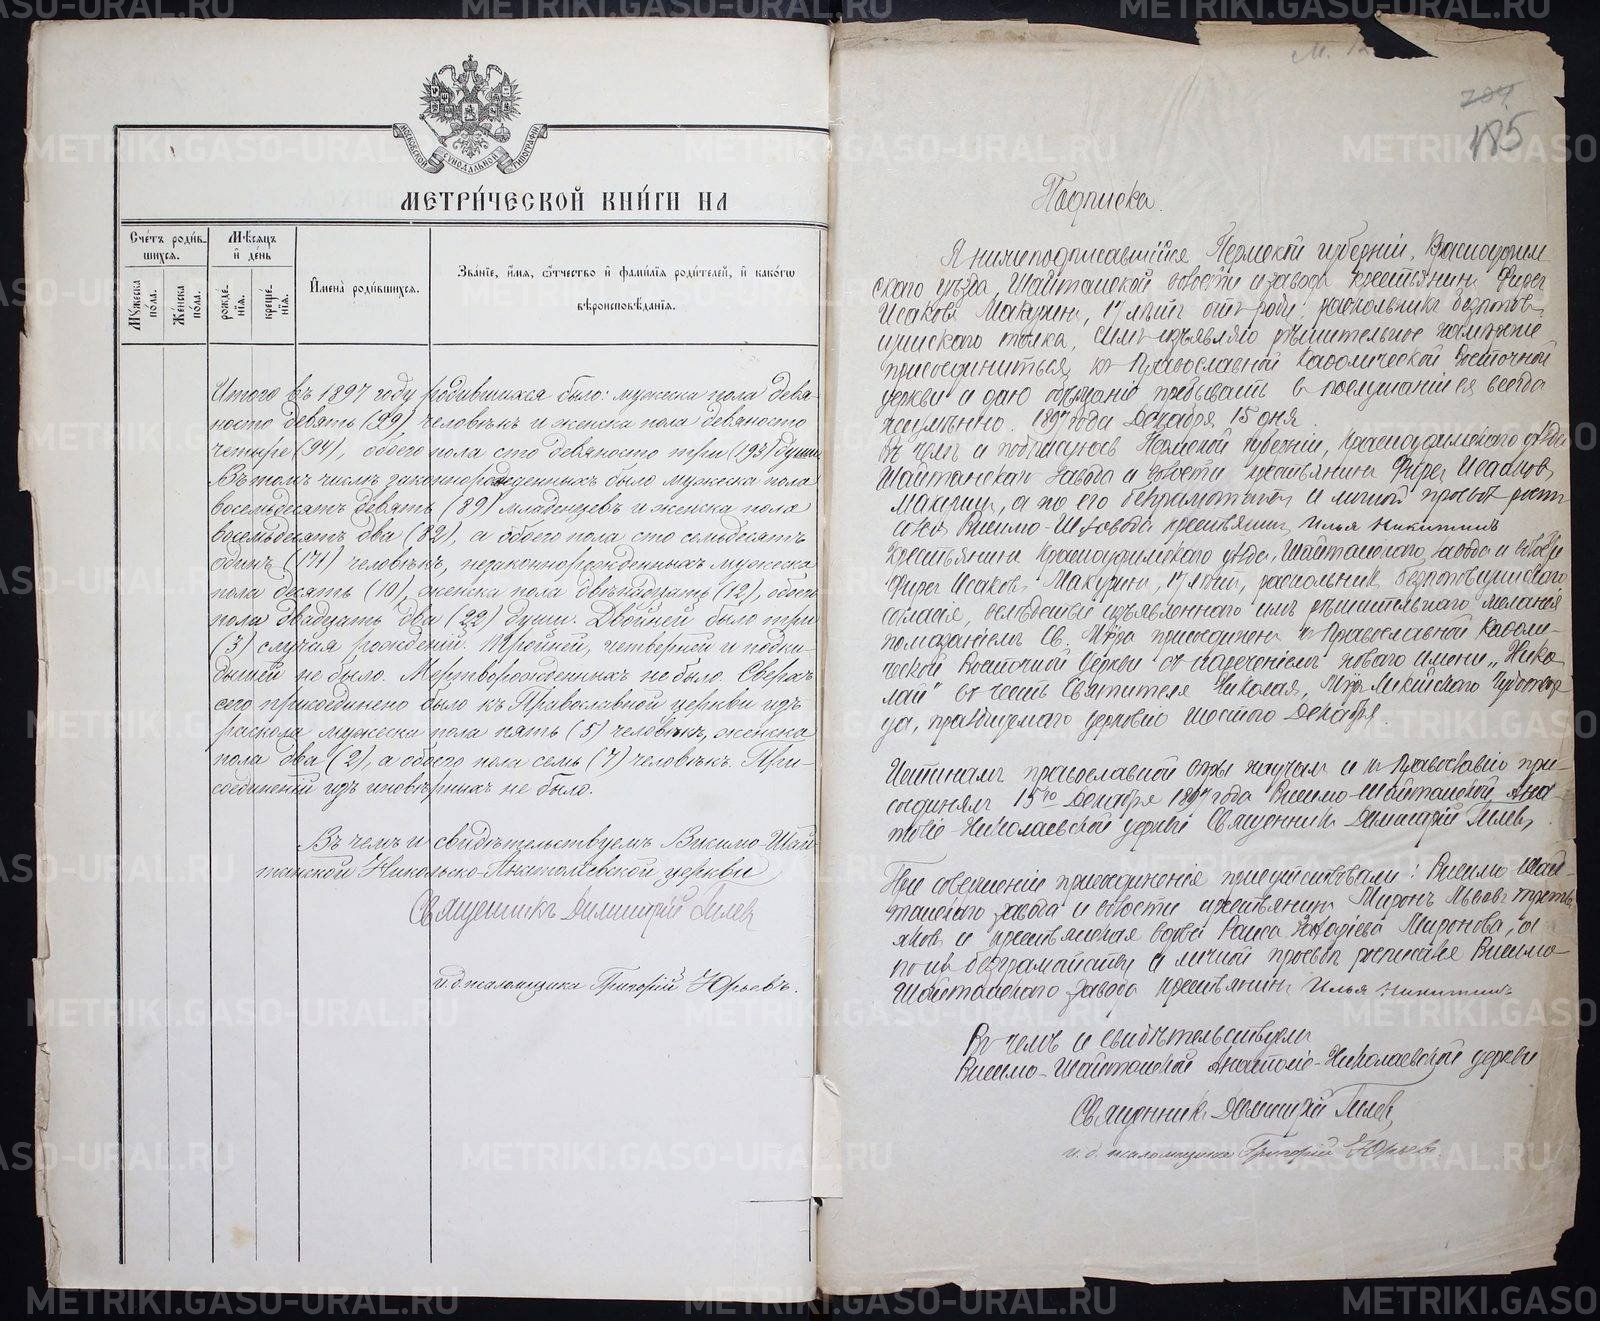 МОСКОВСКОЙ СѴНОДАЛЬНОЙ ТИПОГРАФІИ
МЕТРИ́ЧЕСКОЙ КНИ́ГИ НА
Сче́тъ роди́в-
шихся.
Мѣ́сяцъ
и҆ де́нь
И҆мена̀ роди́вшихся.
Зва́нїе, и҆́мя, ѻ҆́тчество и҆ фами́лїѧ роди́телей, и҆ како́гѡ
вѣроисповѣ́данїѧ.
Мꙋ́жеска
по́ла.
Же́нска
по́ла.
рожде́-
нїѧ.
креще́-
нїѧ.
Итого въ 1897 году родившихся было: мужеска пола девя-
носто девять (99) человѣкъ и женска пола девяносто
четыре (94), обоего пола сто девяносто три (193) души.
Въ томъ числѣ законнорожденныхъ было мужеска пола
восемьдесятъ девять (89) младенцевъ и женска пола
восемьдесятъ два (82), а обоего пола сто семьдесятъ
одинъ (171) человѣкъ, незаконнорожденныхъ мужеска
пола десять (10), женска пола двѣнадцать (12), обоего
пола двадцать два (22) души. Двойней было три
(3) случая рожденій. Тройней, четверней и подки-
дышей не было. Мертворожденныхъ не было. Сверхъ
сего присоединено было къ Православной церкви изъ
раскола мужеска пола пять (5) человѣкъ, женска
пола два (2), а обоего пола семь (7) человѣкъ. При-
соединеній изъ иновѣрныхъ не было.
Въ чемъ и свидѣтельствуемъ Висимо-Шай-
танской Николько-Анатоліевской церкви
Священникъ Димитрій Гилев
и. д. псаломщика Григорій Юрьевъ.
185
Подписка.
Я нижеподписавшійся Пермской губерніи, Красноуфим
скаго уѣзда, Шайтанской волости и завода крестьянинъ Фирсъ
Исаковъ Макуринъ, 17 лѣтъ отъ роду, раскольникъ безпопов-
щинскаго толка, симъ изъявляю рѣшительное желаніе
присоединиться къ Православной Каѳолической Восточной
церкви и даю обѣщаніе пребывать въ послушаніи ея всегда
неизмѣнно. 1897 года Декабря 15 дня.
Въ чемъ и подпишуюсь Пермской губерніи, Красноуфимскаго уѣзда
Шайтанскаго завода и волости крестьянинъ Фирсъ Исаковъ
Макуринъ, а по его безграмотству и личной просьбѣ роспи
Висимо-Ш. завода крестьянинъ Илья Никитинъ
Крестьянинъ Красноуфимскаго уѣзда, Шайтанскаго завода и волости
Фирсъ Исаковъ Макуринъ, 17 лѣтъ, раскольникъ безпоповщинскаго
согласія, вслѣдствіе изъявленнаго имъ рѣшительнаго желанія
помазаніемъ Св. Мѵра присоединенъ къ Православной Каѳоли-
ческой Восточной Церкви съ нареченіемъ новаго имени „Нико
лай" въ честь Святителя Николая, Мѵръ Ликійскаго Чудотвор
ца, празднуемаго церковію шестого Декабря.
Истинамъ православной вѣры научалъ и къ Православію при-
соединялъ 15го Декабря 1897 года Висимо-Шайтанской Ана-
толіе-Николаевской церкви Священникъ Димитрій Гилевъ.
При совершеніи присоединенія присутствовали: Висимо-Шай-
танскаго завода и волости крестьянинъ Миронъ Львовъ Треть
яковъ и крестьянская вдова Раиса Миронова, а
по ихъ безграмотству и личной просьбѣ росписался Висимо-
Шайтанскаго завода крестьянинъ Илья Никитинъ
Въ чемъ и свидѣтельствуемъ
Висимо-Шайтанской Анатоліе-Николаевской церкви
Священникъ Димитрій Гилевъ
и. д. псаломщика Григорій Юрьевъ.
METRIKI.GASO-URAL.RU